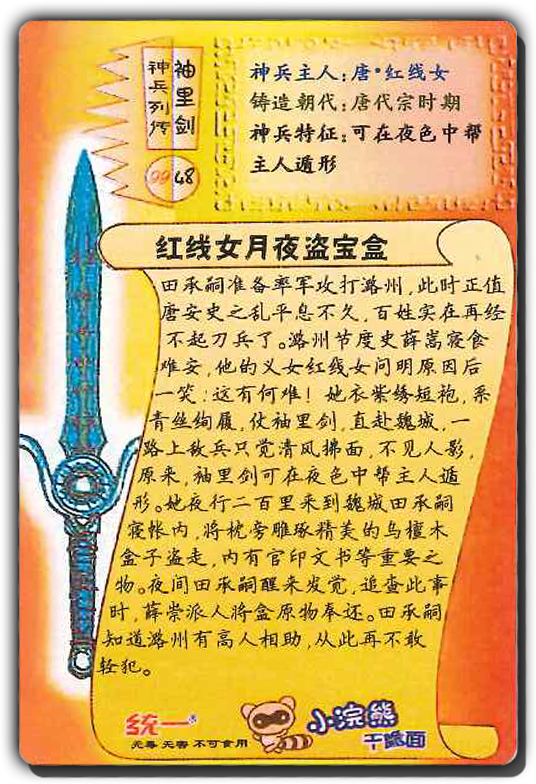 神兵列传
袖里剑
99 48
神兵主人:唐·红线女
铸造朝代:唐代宗时期
神兵特征:可在夜色中帮
主人遁形
红线女月夜盗宝盒
田承嗣准备率军攻打潞州,此时正值
唐安史之乱平息不久,百姓实在再经
不起刀兵了。潞州节度史薛嵩寝食
难安,他的义女红线女问明原因后
一笑:这有何难!她衣紫绣短袍,系
青丝绚履,仗袖里剑,直赴魏城,一
路上敌兵只觉清风拂面,不见人影,
原来,袖里剑可在夜色中帮主人遁
形。她夜行二百里来到魏城田承嗣
寝帐内,将枕旁雕琢精美的乌檀木
盒子盗走,内有官印文书等重要之
物。夜间田承嗣醒来发觉,追查此事
时,薛崇派人将盒原物奉还。田承嗣
知道潞州有高人相助,从此再不敢
轻犯。
统一®
无毒 无害 不可食用
小浣熊
干脆面